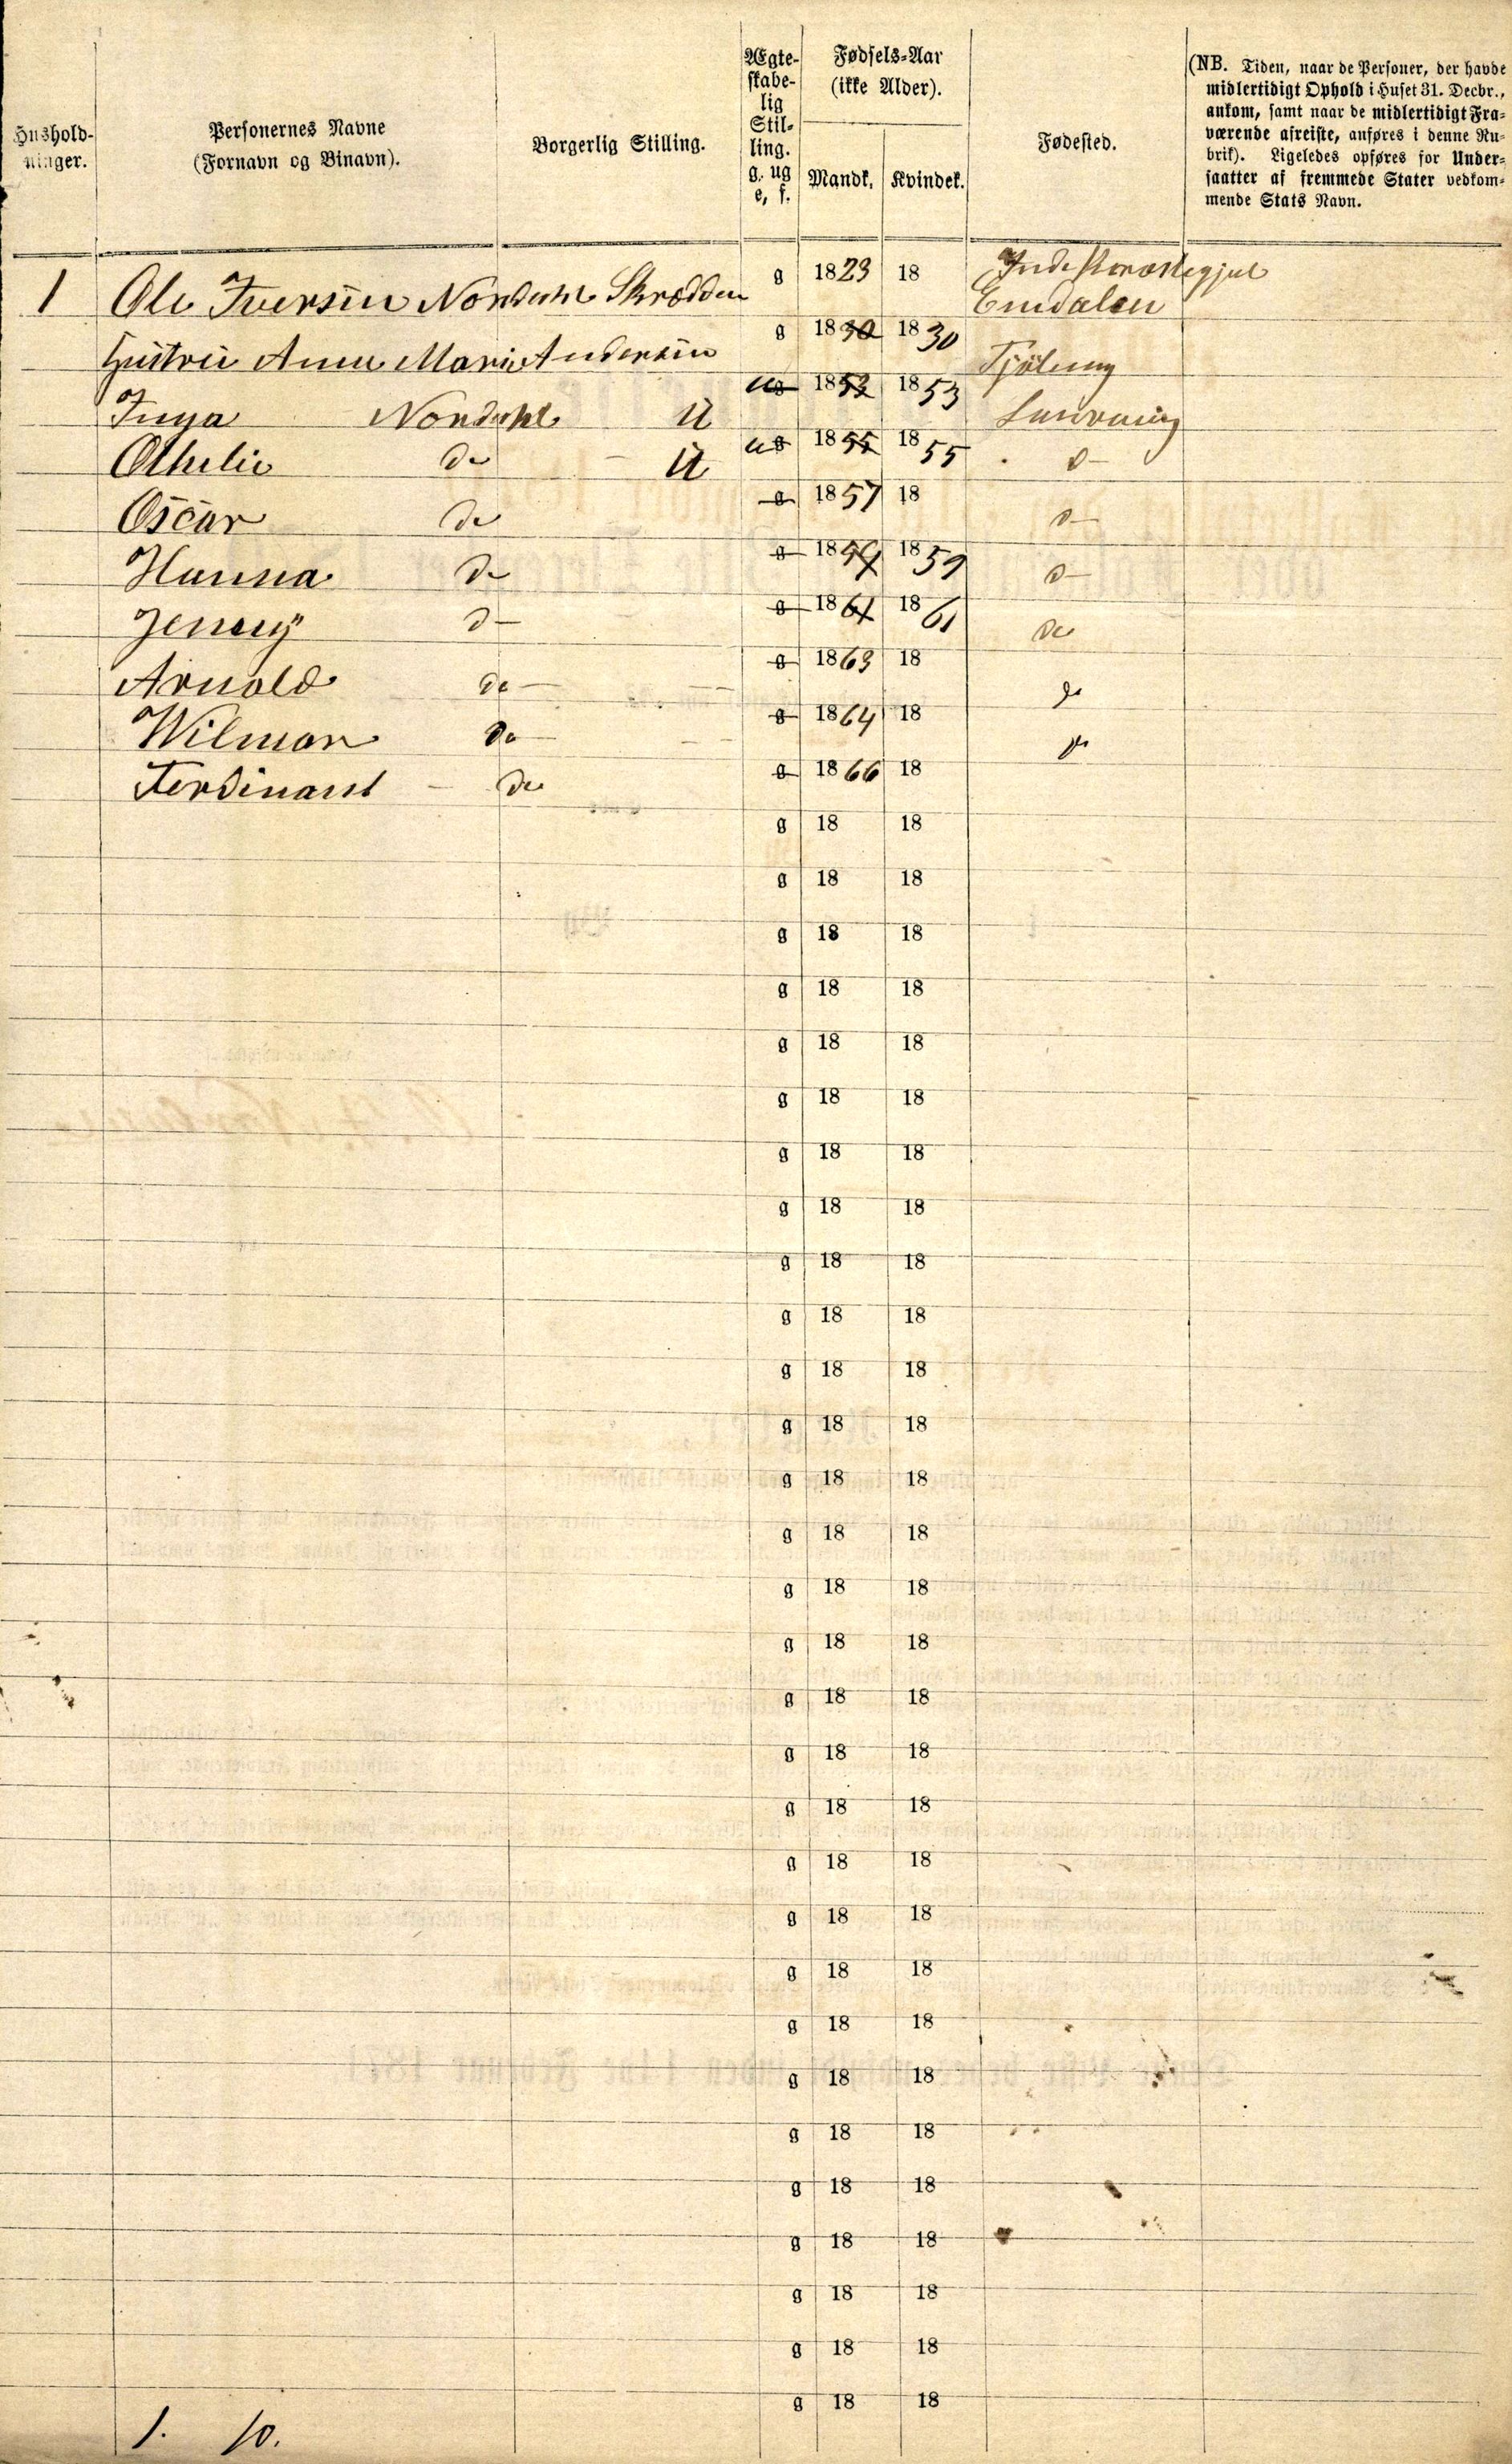 Hushold-
ninger.
Personernes Navne
(Fornavn og Binavn).
Borgerlig Stilling.
Ægte-
skabe-
lig
Stil-
ling.
g. ug
e, f.
Fødsels-Aar
(ikke Alder).
Mandk.
Kvindek.
Fødested.
(NB. Tiden, naar de Personer, der havde
midlertidigt Ophold i Huset 31. Decbr.,
ankom, samt naar de midlertidigt Fra-
værende afreiste, anføres i denne Ru-
brik). Ligeledes opføres for Under-
saatter af fremmede Stater vedkom-
mende Stats Navn.
1 Ole Iversen Nordahl Skrædder g 1823 18 Endalen
Hustru Anne Marie Andersen g 1830 1830 Tjølling
Inga Nordahl U ug 1853 1853 Laurvig
Othelie do U ug 1855 1855 d
Oscar do g 1857 18 d
Hanna do g 1859 1859 d
Jenny d g 1861 1861 do
Arnold do g 1863 18 do
Wilmar do g 1864 18 do
Ferdinant do g 1866 18
g 18 18
g 18 18
g 18 18
g 18 18
g 18 18
g 18 18
g 18 18
g 18 18
g 18 18
g 18 18
g 18 18
g 18 18
g 18 18
g 18 18
g 18 18
g 18 18
g 18 18
g 18 18
g 18 18
g 18 18
g 18 18
g 18 18
g 18 18
g 18 18
g 18 18
g 18 18
g 18 18
g 18 18
g 18 18
g 18 18
1. 10.